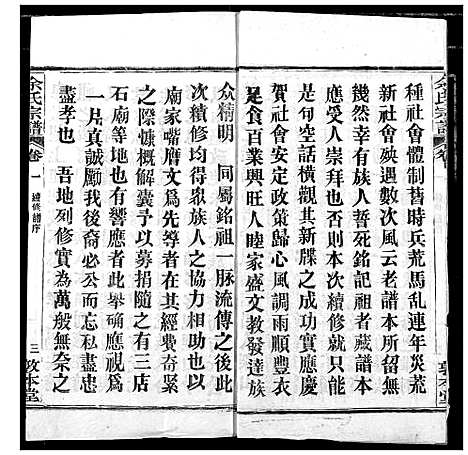 種社會體制舊時兵荒馬亂連年災荒
新社會殃遇數次風云老譜本所留無
幾然幸有族人誓死銘記祖者藏譜本
應受人崇拜也否則本次續修就可能
是句空話橫觀其新牒之成功實應慶
賀社會安定政策歸心風調雨順豐衣
足食百姓興旺人睦家盛文教發達族
众精明 同屬銘祖一脉流傳之後此
次續修均得衆族人之協力相助也以
廟家嘴膺文為先導者在其經費奇緊
之際慷概解囊予以募捐隨之有三店
石廟等地也有響應者此舉确應視爲
一片真誠勵我後裔必公而忘私盡忠
盡孝也 吾地列修實為萬般無奈之
余氏宗譜
卷一
續修譜序
三
敦本堂
余氏宗譜
卷
敦本堂